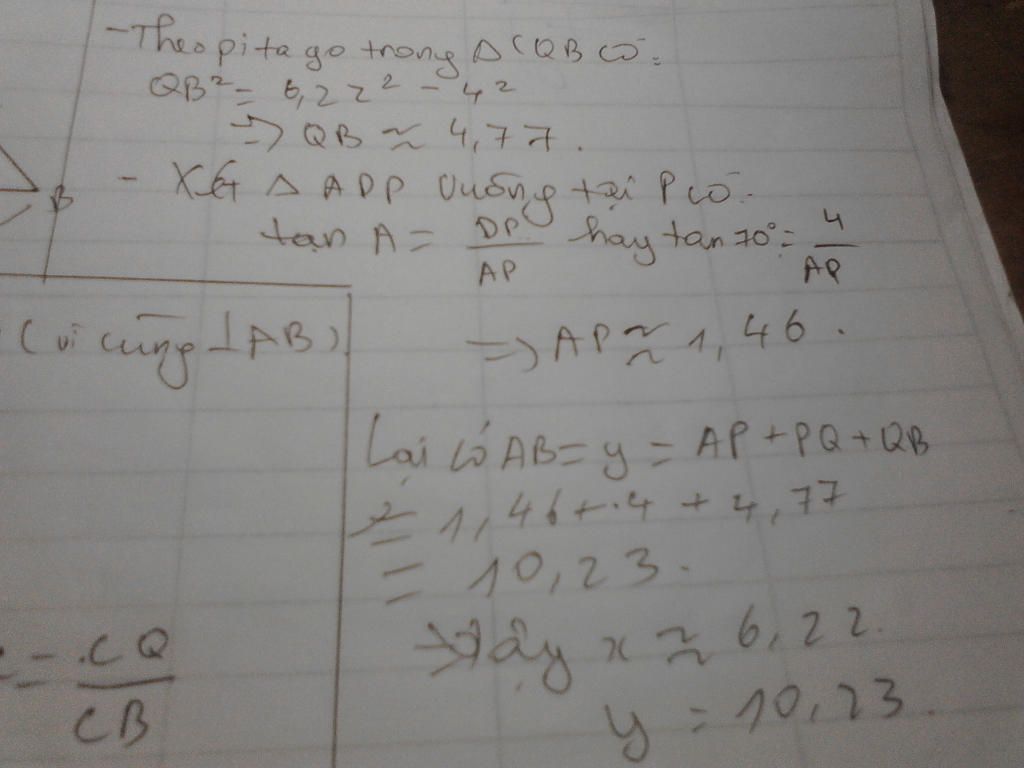 - Theo pitago trong Δ CQB có:
QB² = 6,22² - 4²
=> QB ≈ 4,77.
B
- Xét Δ ADP vuông tại P có:
tan A = DP/AP hay tan 70° = 4/AP
(vì cùng ⊥ AB)
=> AP ≈ 1,46.
Lại có AB = y = AP + PQ + QB
= 1,46 + 4 + 4,77
= 10,23.
= CQ/CB
→ Vậy x ≈ 6,22.
y = 10,23.